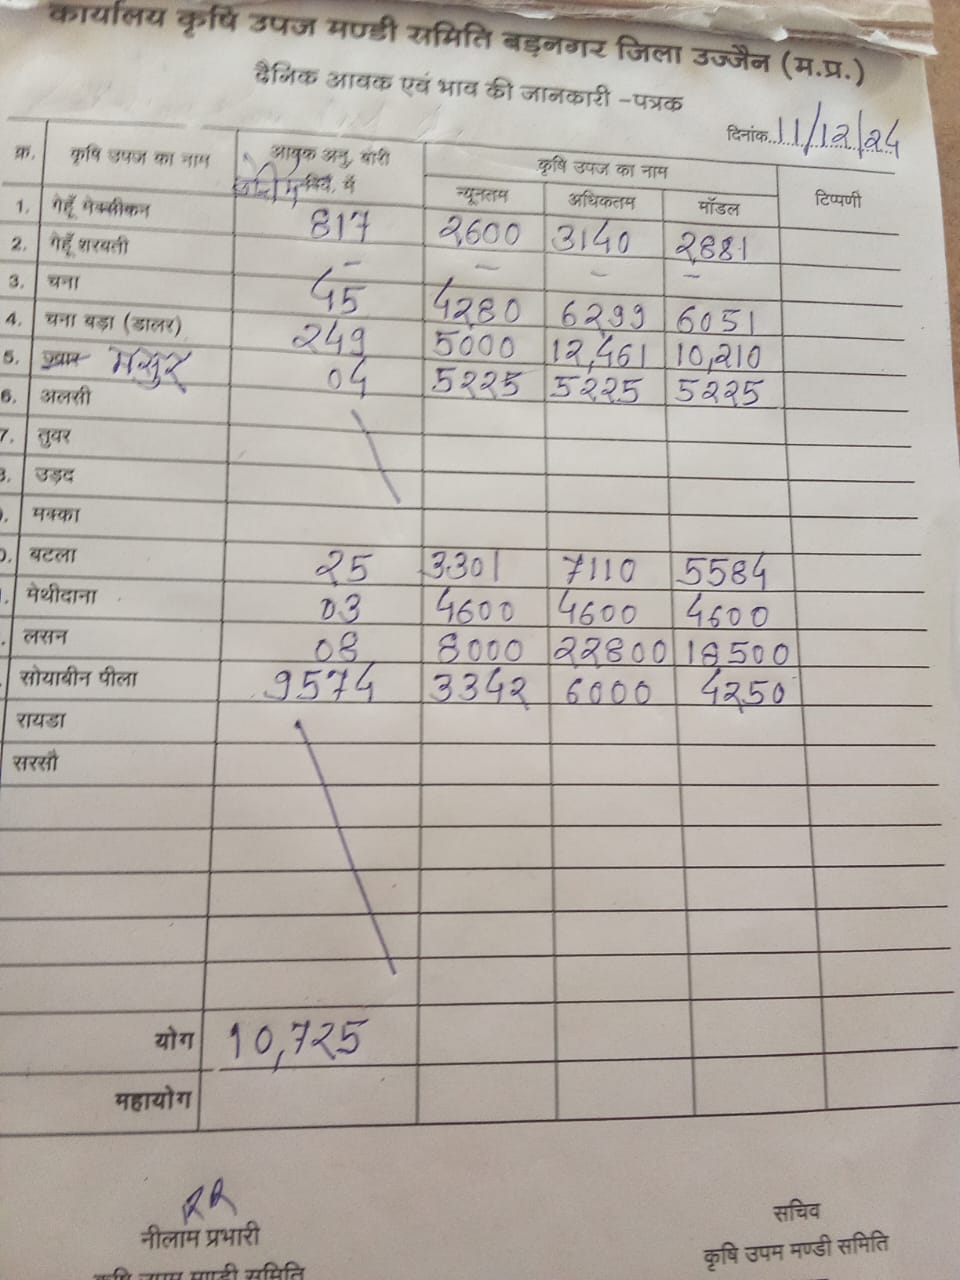 कार्यालय कृषि उपज मण्डी समिति बड़नगर जिला उज्जैन (म.प्र.)
दैनिक आवक एवं भाव की जानकारी -पत्रक
दिनांक 11/12/24
क्र. कृषि उपज का नाम आवक अनु. बोरी में कृषि उपज का नाम टिप्पणी
न्यूनतम अधिकतम मॉडल
1. गेहूँ मेक्सीकन 817 2600 3140 2881
2. गेहूँ शरबती - - - -
3. चना 45 4280 6299 6051
4. चना बड़ा (डालर) 249 5000 12,461 10,210
5. मसुर 04 5225 5225 5225
6. अलसी
7. तुवर
8. उड़द
मक्का
बटला 25 3301 7110 5584
मेथीदाना 03 4600 4600 4600
लसन 08 8000 22800 18500
सोयाबीन पीला 9574 3342 6000 4250
रायडा
सरसौ
योग 10,725
महायोग
RR
नीलाम प्रभारी
सचिव
कृषि उपज मण्डी समिति
कृषि उपम मण्डी समिति